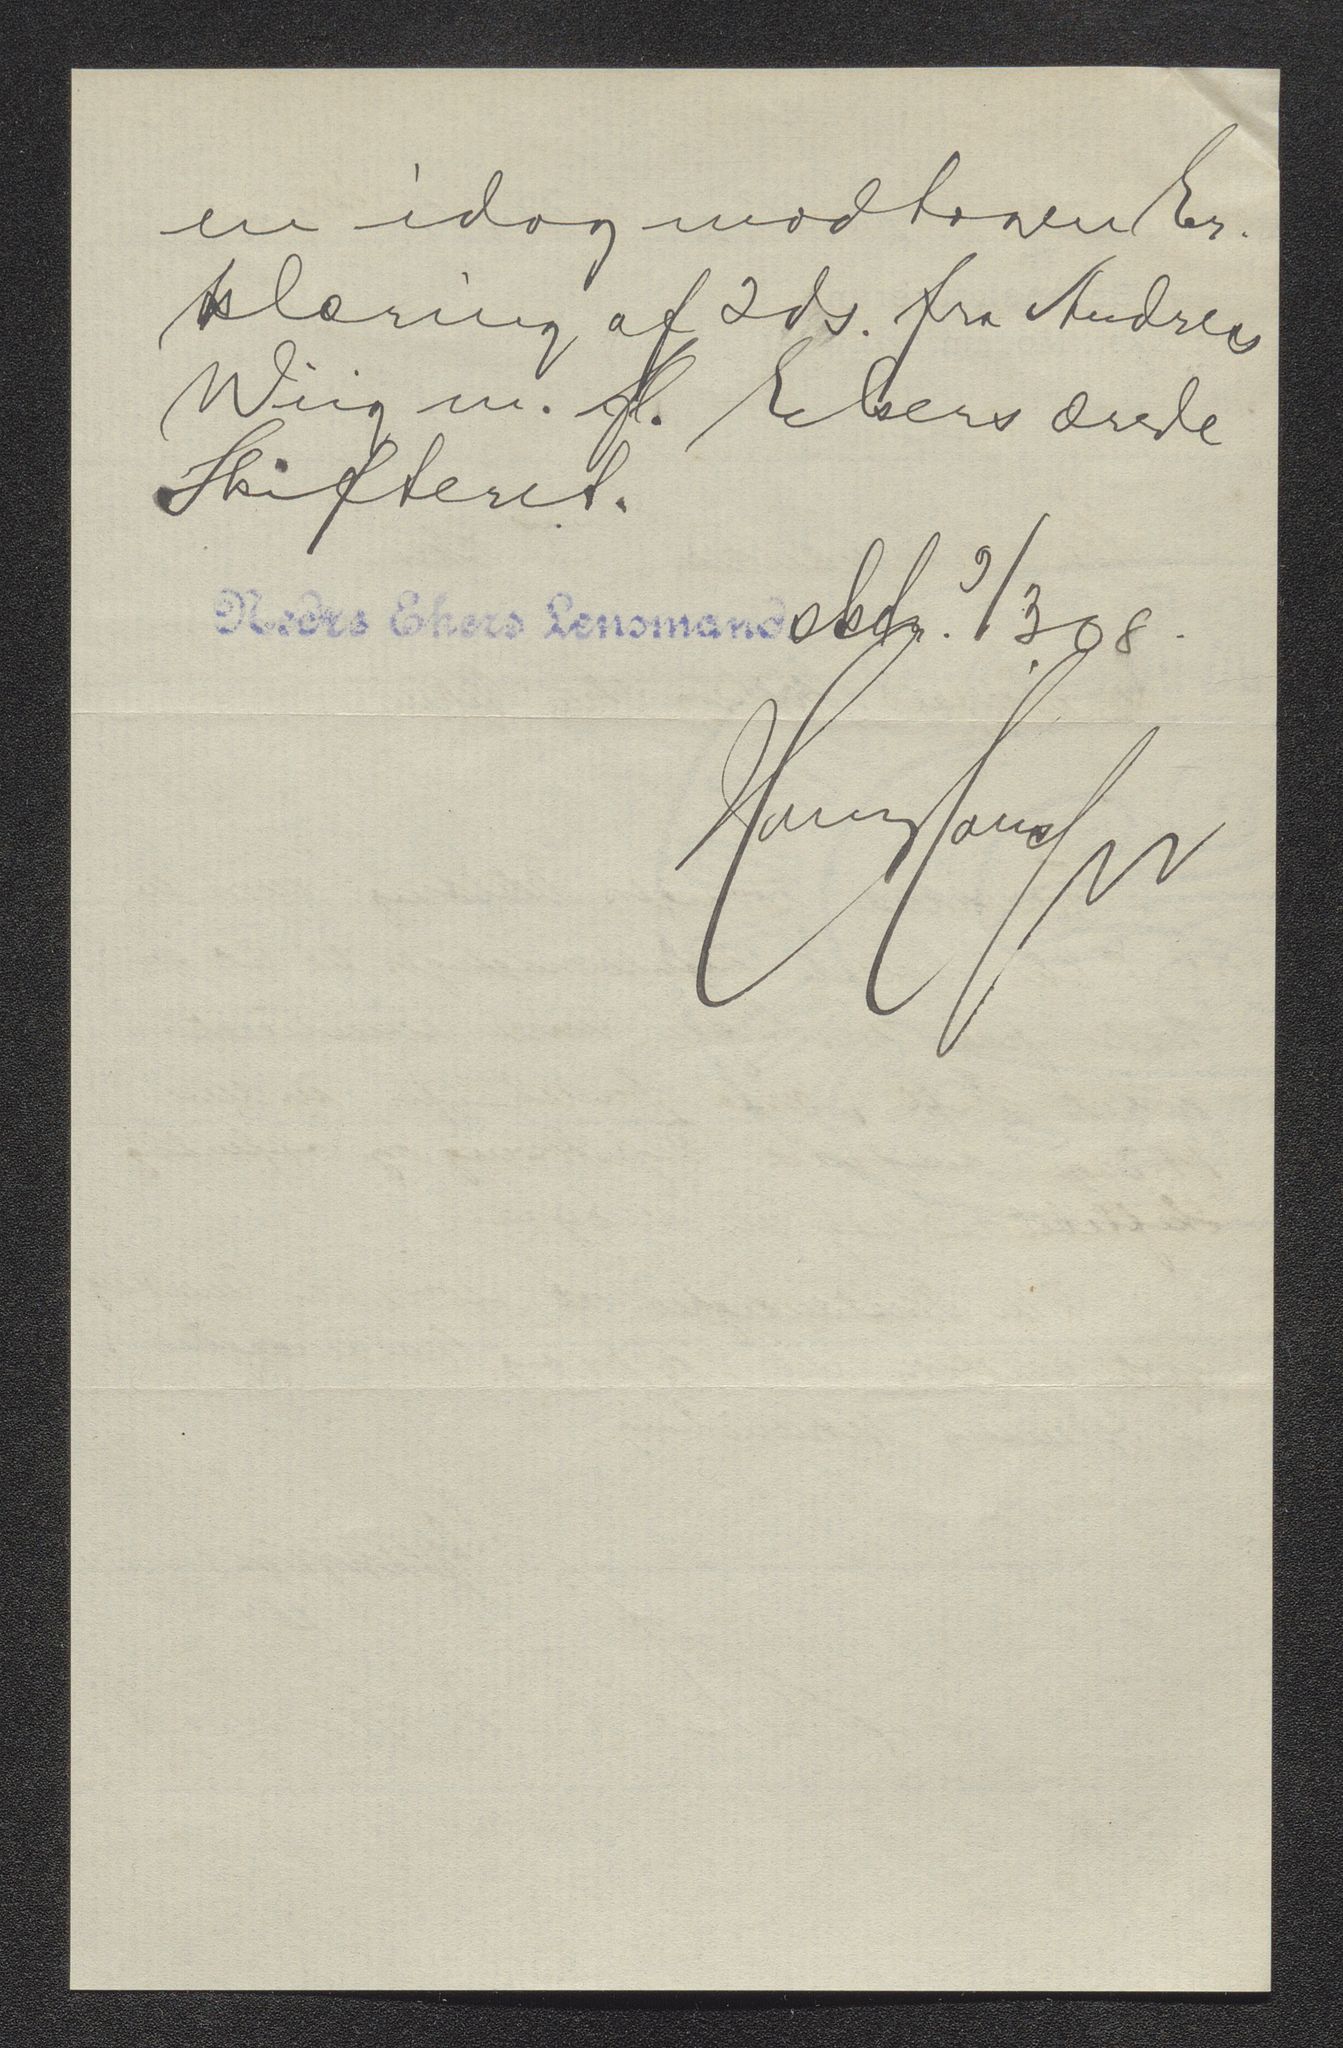 en idag modtagen Er-
klæring af 2 ds. fra Andreas
Wiig m. fl. Ekers ærede
Skifteret.
Nedre Ekers Lensmandsktr. 9/3 08.